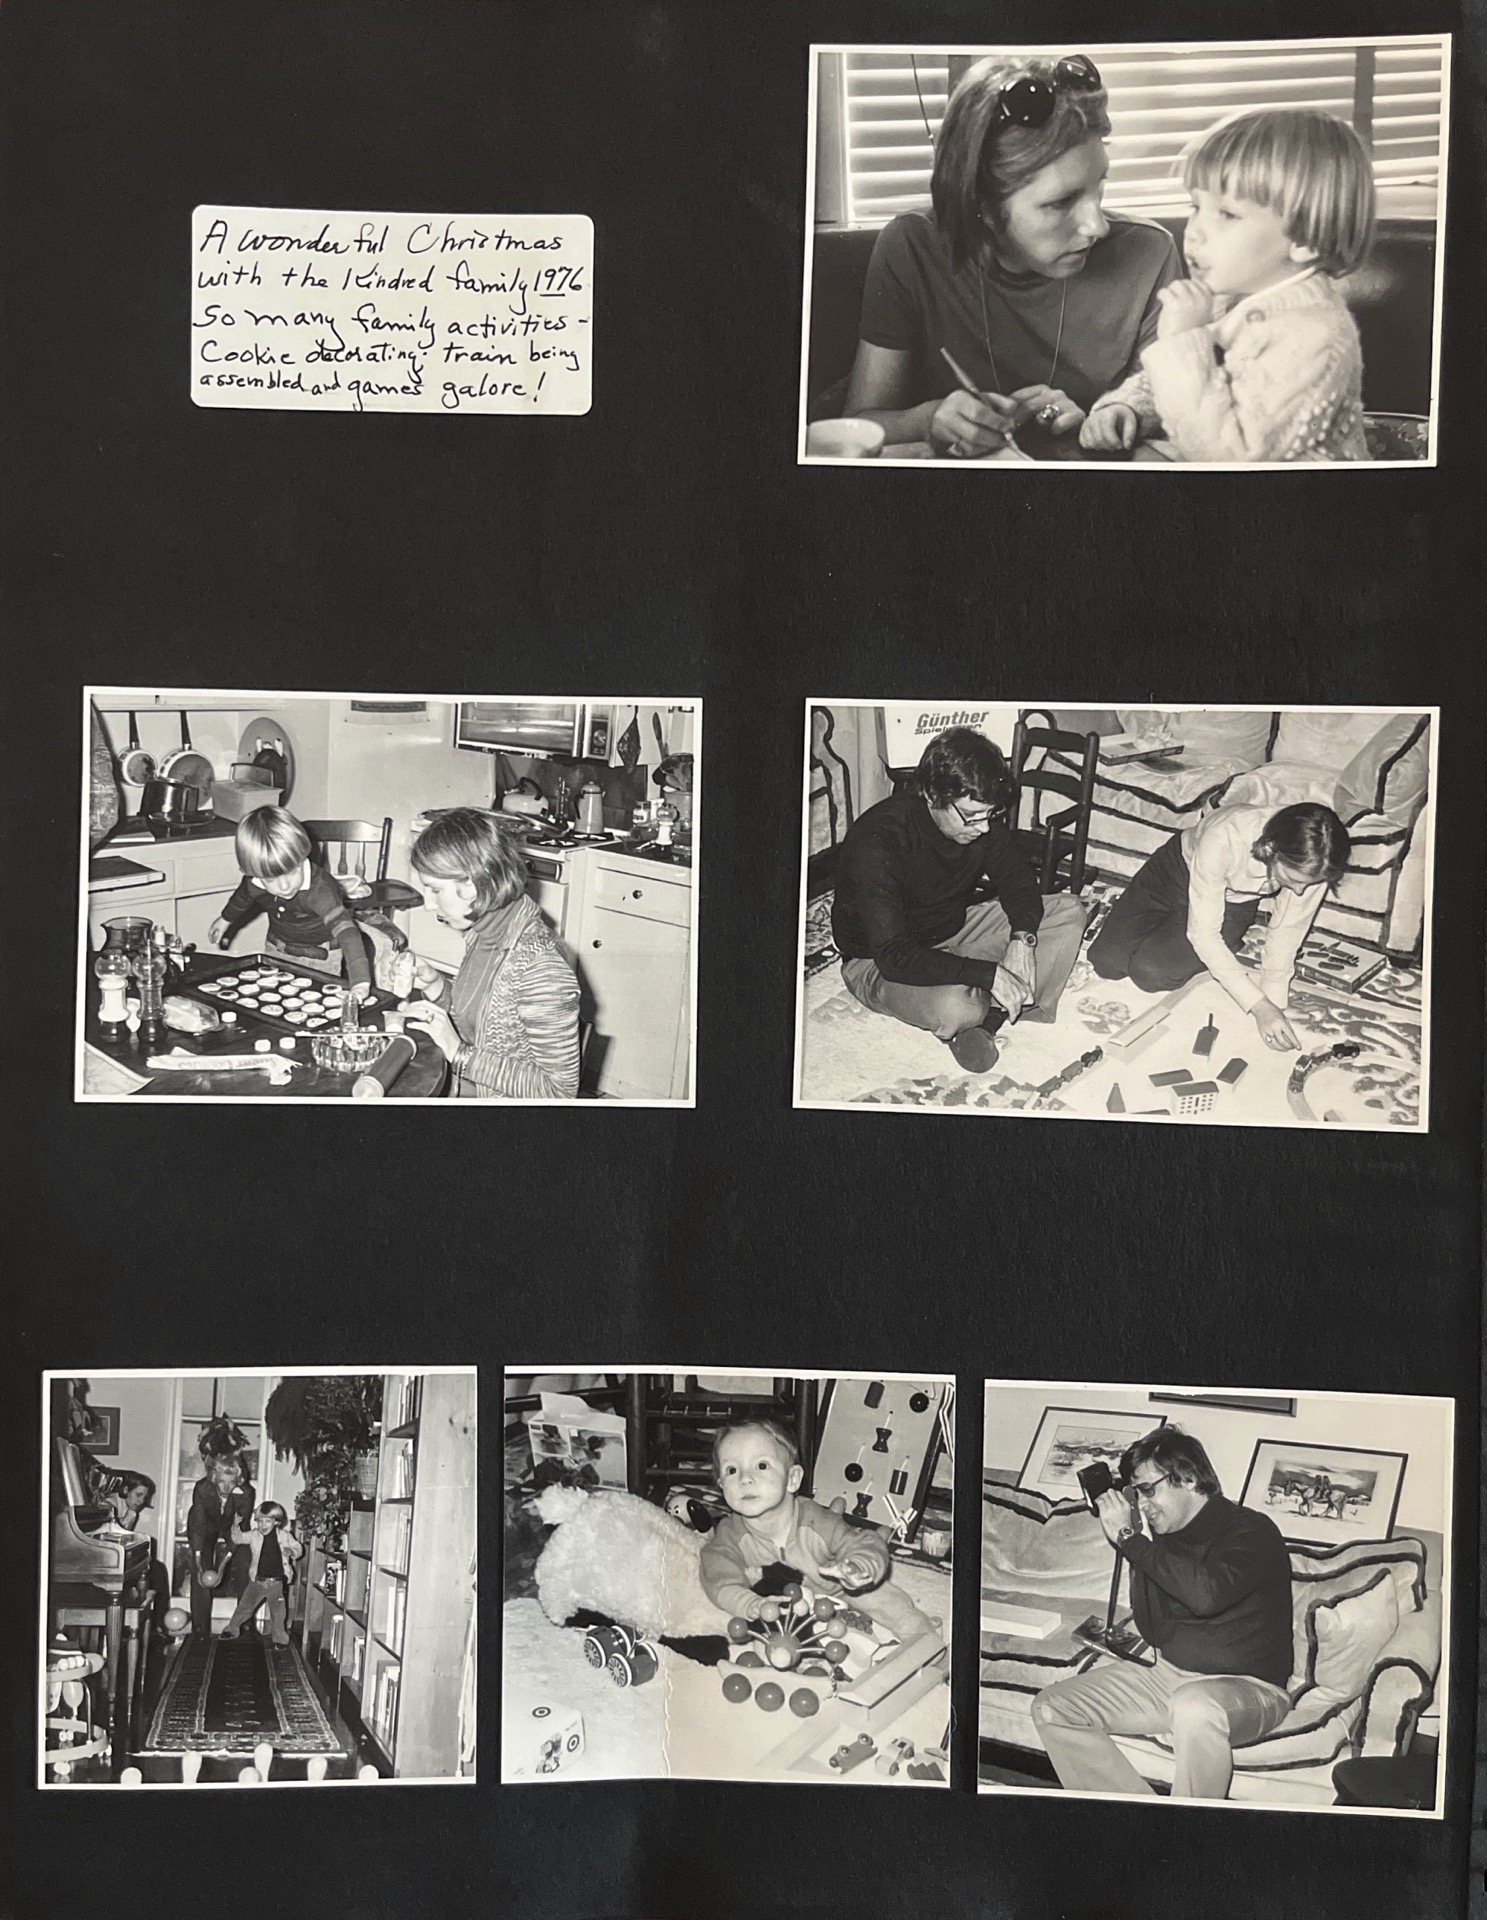 A wonderful Christmas
with the Kindred family 1976
So many family activities -
Cookie decorating, train being
assembled and games galore!
Günther